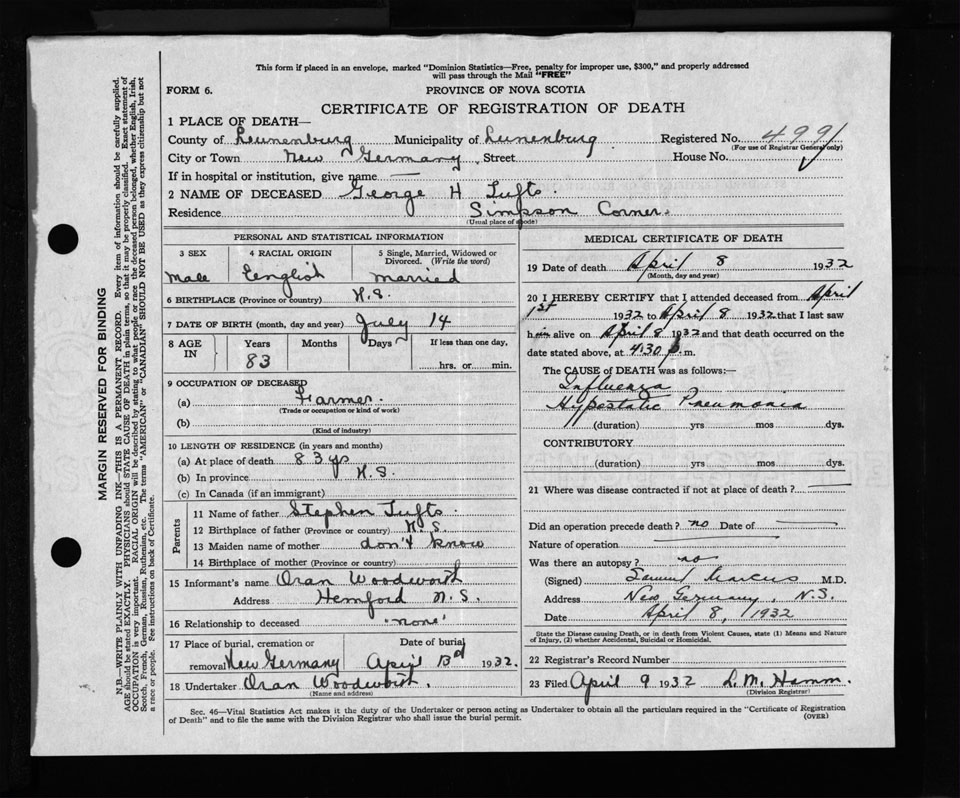 This form if placed in an envelope, marked "Dominion Statistics—Free, penalty for improper use, $300," and properly addressed
will pass through the Mail "FREE"
FORM 6.
PROVINCE OF NOVA SCOTIA
CERTIFICATE OF REGISTRATION OF DEATH
1 PLACE OF DEATH—
County of Leunenburg Municipality of Lunenburg Registered No. 499
(For use of Registrar General only)
City or Town New Germany, Street House No.
If in hospital or institution, give name —
2 NAME OF DECEASED George H Tufts
Residence Simpson Corner
(Usual place of abode)
PERSONAL AND STATISTICAL INFORMATION
3 SEX 4 RACIAL ORIGIN 5 Single, Married, Widowed or
Divorced. (Write the word)
Male English Married
6 BIRTHPLACE (Province or country) N.S.
7 DATE OF BIRTH (month, day and year) July 14
8 AGE IN Years Months Days If less than one day,
83 hrs. or min.
9 OCCUPATION OF DECEASED
(a) Farmer
(Trade or occupation or kind of work)
(b)
(Kind of industry)
10 LENGTH OF RESIDENCE (in years and months)
(a) At place of death 83 ys
(b) In province N.S.
(c) In Canada (if an immigrant)
Parents
11 Name of father Stephen Tufts
12 Birthplace of father (Province or country) N.S.
13 Maiden name of mother don't know
14 Birthplace of mother (Province or country)
15 Informant's name Oran Woodworth
Address Hemford N.S.
16 Relationship to deceased "none"
17 Place of burial, cremation or Date of burial
removal New Germany April 13d 1932.
18 Undertaker Oran Woodworth.
(Name and address)
MEDICAL CERTIFICATE OF DEATH
19 Date of death April 8 1932
(Month, day and year)
20 I HEREBY CERTIFY that I attended deceased from April
1st 1932 to April 8 1932 that I last saw
him alive on April 8 1932 and that death occurred on
date stated above, at 4:30 p.m.
The CAUSE of DEATH was as follows:—
Influenza
Hypostatic Pneumonia
(duration) yrs mos dys.
CONTRIBUTORY
(duration) yrs mos dys.
21 Where was disease contracted if not at place of death? —
Did an operation precede death? no Date of —
Nature of operation —
Was there an autopsy? no
(Signed) Samuel Marcus M.D.
Address New Germany, N.S.
Date April 8, 1932
State the Disease causing Death, or in death from Violent Causes, state (1) Means and Nature
of Injury, (2) whether Accidental, Suicidal or Homicidal.
22 Registrar's Record Number
23 Filed April 9 1932 L.M. Hamm.
(Division Registrar)
Sec. 46—Vital Statistics Act makes it the duty of the Undertaker or person acting as Undertaker to obtain all the particulars required in the "Certificate of Registration
of Death" and to file the same with the Division Registrar who shall issue the burial permit.
(OVER)
MARGIN RESERVED FOR BINDING
N.B—WRITE PLAINLY WITH UNFADING INK—THIS IS A PERMANENT RECORD. Every item of information should be carefully supplied.
AGE should be stated EXACTLY. PHYSICIANS should STATE CAUSE OF DEATH in plain terms, so that it may be properly classified. Exact statement of
OCCUPATION is very important. RACIAL ORIGIN will be described by stating to what people or race the deceased person belonged, whether English, Irish,
Scotch, French, German, Russian, Ruthenian, etc. The terms "AMERICAN" or "CANADIAN" SHOULD NOT BE USED as they express citizenship but not
a race or people. See instructions on back of Certificate.